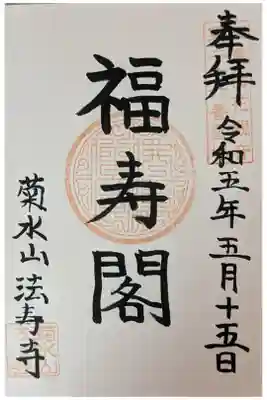 奉拝
令和五年五月十五日
福寿閣
菊水山法寿寺